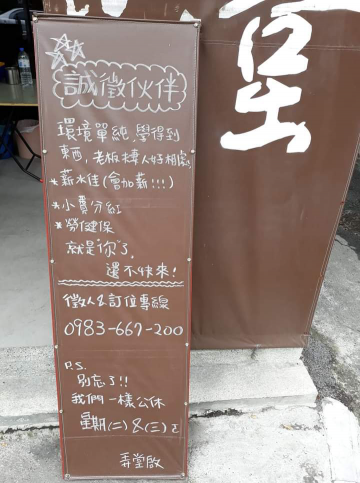 誠徵伙伴
環境單純,學得到
東西,老板棒人好相處
*薪水佳(會加薪!!!)
*小費分紅
*勞健保
就是你了,
還不快來!
徵人&訂位專線
0983-667-200
P.S.
別忘了!!
我們一樣公休
星期(二)&(三)
弄堂啟